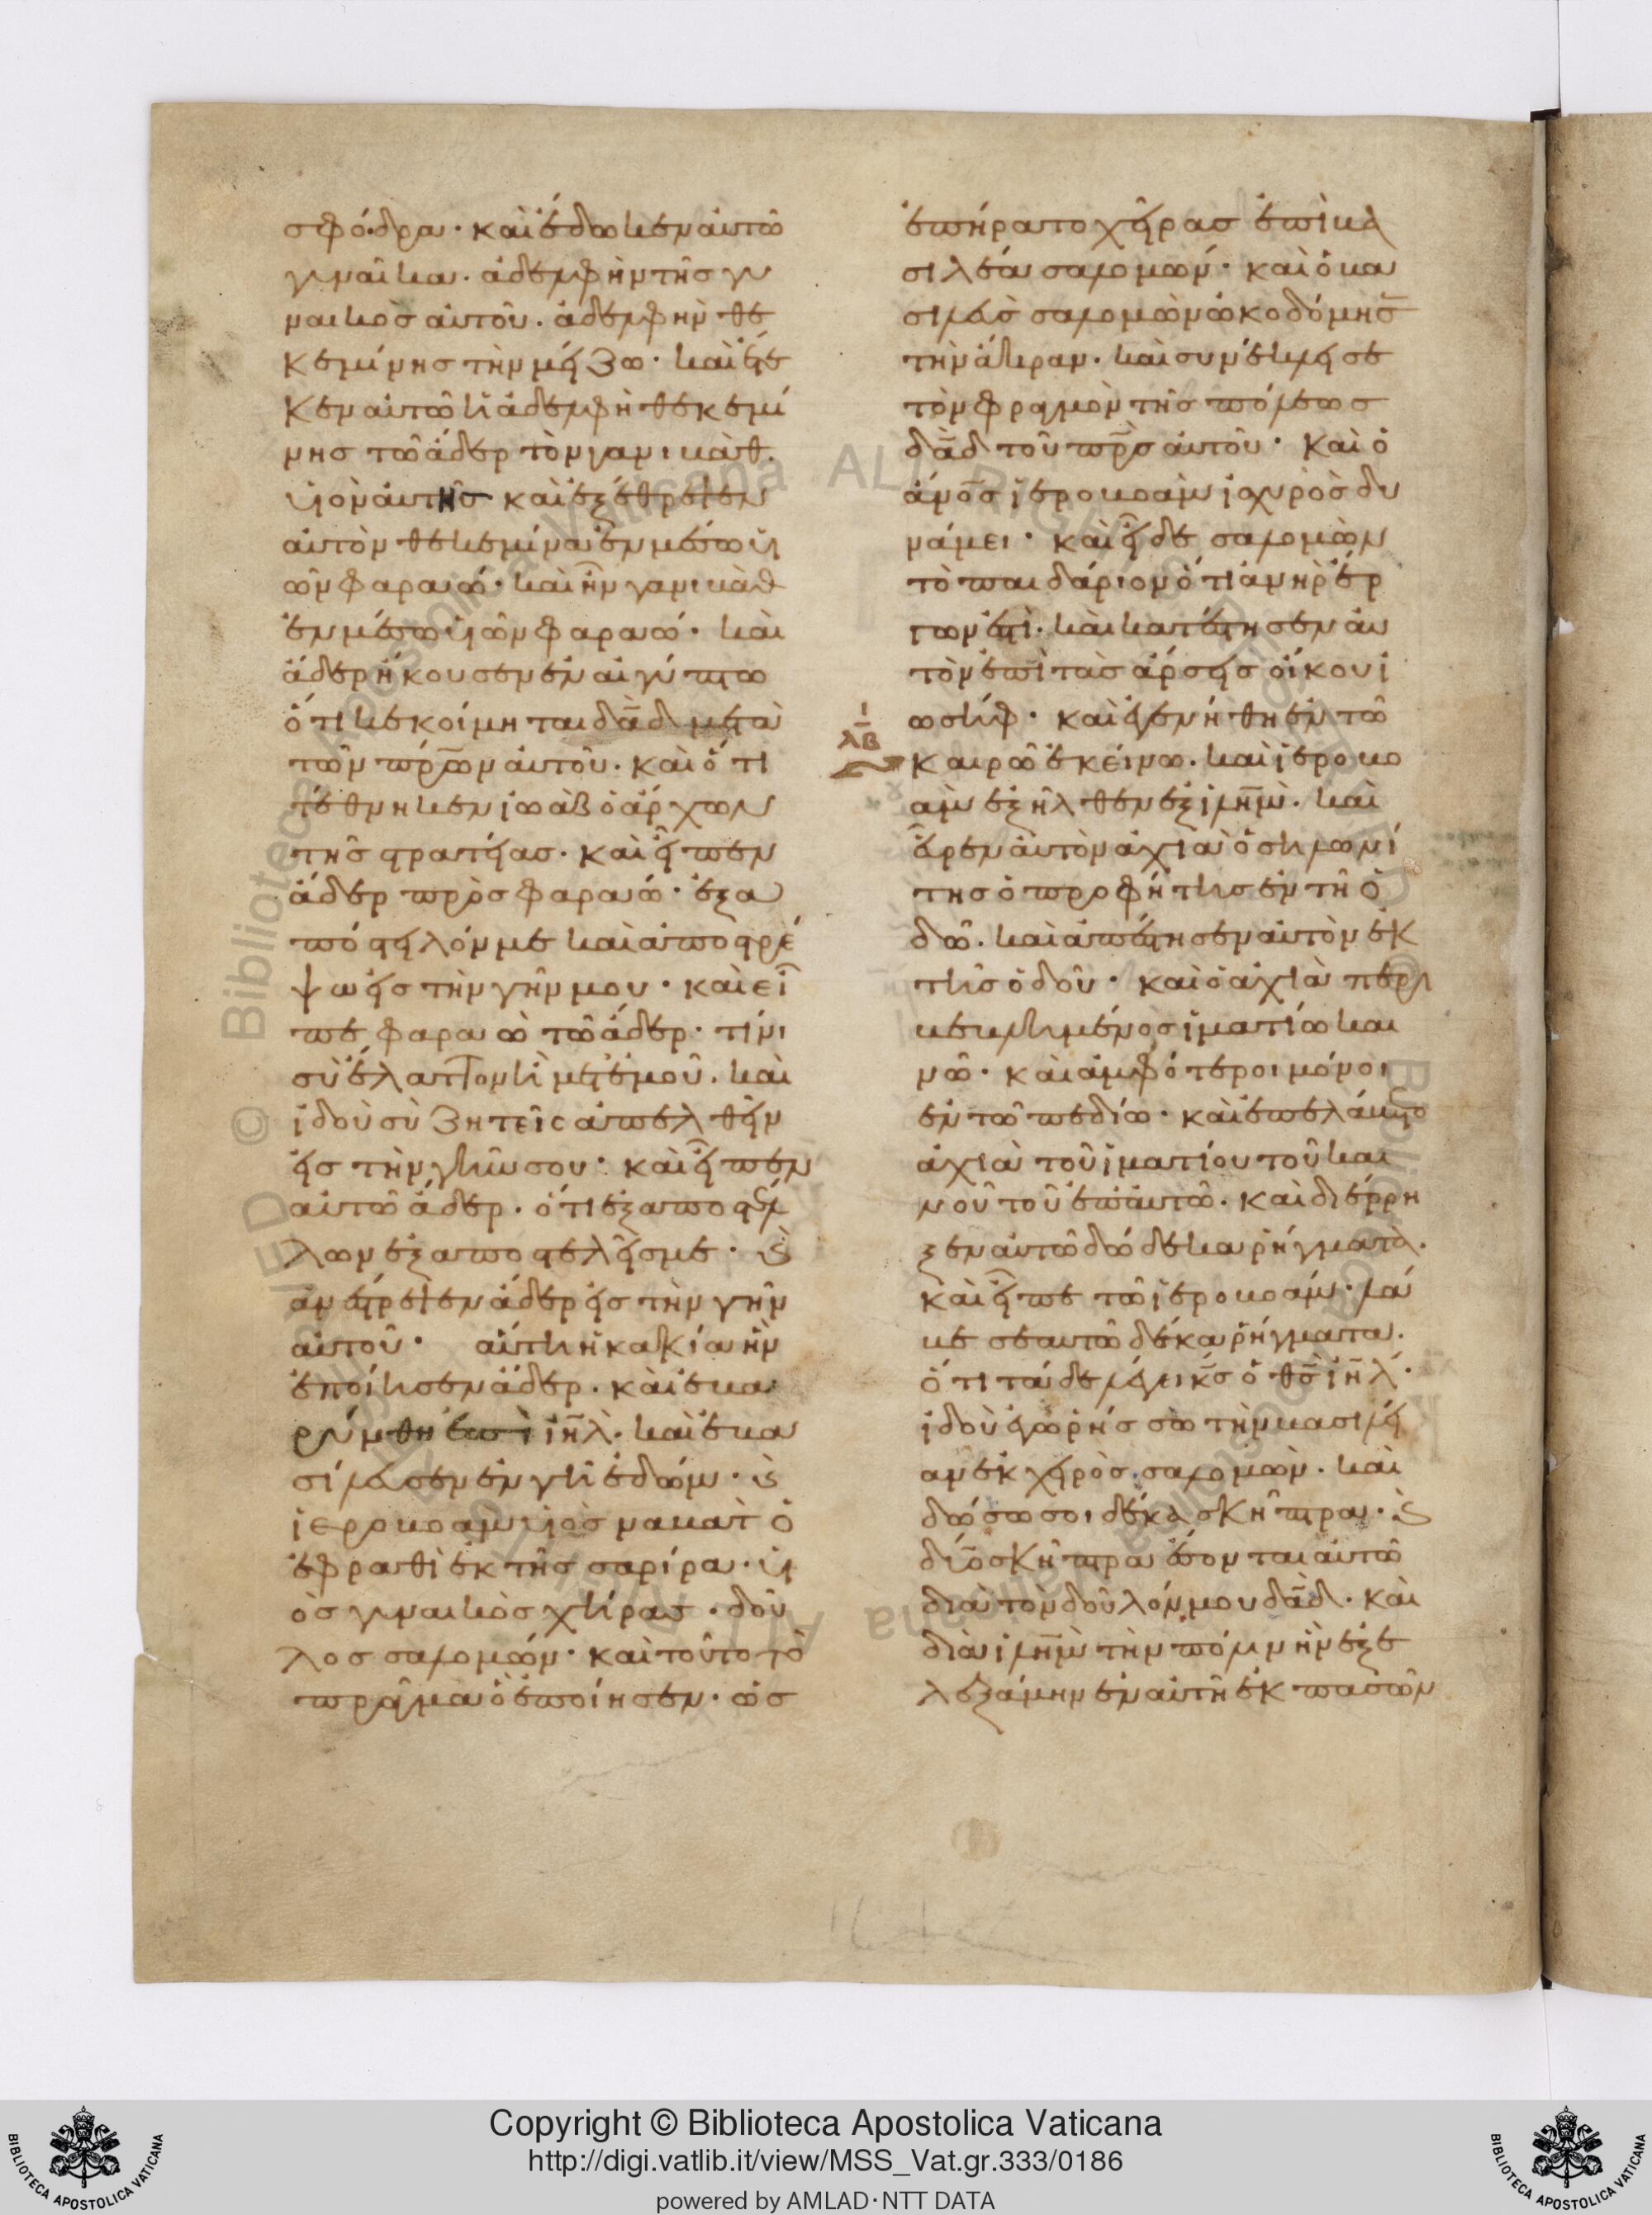 σφόδρα· καὶ ἔδωκεν αὐτῶ
γυναῖκα. ἀδελφὴν τῆς γυ
ναικὸς αὐτοῦ. ἀδελφὴν θε
κεμίνης τὴν μείζω· καὶ ἔτε
κεν αὐτῶ ἡ ἀδελφὴ θεκεμί
νης τῶ ἄδερ τὸν γανιβὰθ.
υἱον αὐτῆς καὶ ἐξέθρεψεν
αὐτὸν θεκεμίνα ἐν μέσω υἱ
ῶν φαραώ· καὶ ἦν γανιβὰθ
ἐν μέσω υἱῶν φαραώ· καὶ
ἄδερ ἤκουσεν ἐν αἰγύπτω
ὅτι κεκοίμηται δα̅δ̅ μετὰ
τῶν πρ̅ω̅ν αὐτοῦ. καὶ ὅτι
τέθνηκεν ἰωὰβ ὁ ἄρχων
τῆς στρατείας· καὶ εἶπεν
ἄδερ πρὸς φαραώ· ἐξα
πόστειλόν με καὶ ἀποστρέ
ψω εἰς τὴν γῆν μου· καὶ εἶ
πε φαραὼ τῶ ἄδερ· τίνι
σὺ ἐλαττονῆ μετ' ἐμοῦ. καὶ
ἰδοὺ σὺ ζητεῖς ἀπελθεῖν
εἰς τὴν γῆν σου· καὶ εἶπεν
αὐτῶ ἄδερ. ὅτι ἐξαποστέλ
λων ἐξαποστελεῖς με· ϗ
ἀνέστρεψεν ἄδερ εἰς τὴν γῆν
αὐτοῦ· αὕτη ἡ κακία ἣν
ἐποίησεν ἄδερ. καὶ ἐβα
ρύνθη ἐπὶ ι̅η̅λ̅. καὶ ἐβα
σίλευσεν ἐν γῆ ἐδώμ· ϗ
ἱεροβοαμ υἱὸς ναβατ ὁ
ἐφραθὶ ἐκ τῆς σαρίρα· υἱ
ὸς γυναικὸς χήρας· δοῦ
λος σαλομών· καὶ τοῦτο τὸ
πρᾶγμα ὃ ἐποίησεν· ὡς
ἐπήρατο χεῖρας ἐπὶ βα
σιλέα σαλομών· καὶ ὁ βα
σιλεὺς σαλομὼν ὠκοδόμησ̅
τὴν ἄκραν. καὶ συνέκλεισε
τὸν φραγμὸν τῆς πόλεως
δα̅δ̅ τοῦ πρ̅ς̅ αὐτοῦ· καὶ ὁ
ἄνο̅ς̅ ἱεροβοὰμ ἰσχυρὸς δυ
νάμει· καὶ εἶδε σαλομὼν
τὸ παιδάριον ὅτι ἀνὴρ ἔρ
γων ἐστὶ. καὶ κατέστησεν αὐ
τὸν ἐπὶ τὰς ἄρσεις οἴκου ἰ
ωσήφ· καὶ ἐγενήθη ἐν τῶ
λ̅β̅
καιρῶ ἐκείνω. καὶ ἱεροβο
ὰμ ἐξῆλθεν ἐξ ἱλη̅μ̅. καὶ
εὗρεν αὐτὸν ἀχιὰ ὁ σηλωνί
της ὁ προφήτης ἐν τῆ ὁ
δῶ. καὶ ἀπέστησεν αὐτὸν ἐκ
τῆς ὁδοῦ· καὶ ὁ ἀχιὰ περι
βεβλημένος ἱματίω και
νῶ· καὶ ἀμφότεροι μόνοι
ἐν τῶ πεδίω· καὶ ἐπελάβετο
ἀχιὰ τοῦ ἱματίου τοῦ και
νοῦ τοῦ ἐπ' αὐτῶ. καὶ διέρρη
ξεν αὐτῶ δώδεκα ῥήγματα.
καὶ εἶπε τῶ ἱεροβοάμ· λά
βε σεαυτῶ δέκα ῥήγματα.
ὅτι τάδε λέγει κ̅ς̅ ὁ θ̅ς̅ ι̅η̅λ̅·
ἰδοὺ ἐγὼ ῥήσσω τὴν βασιλεί
αν ἐκ χειρὸς σαλομὼν. καὶ
δώσω σοι δέκα σκῆπτρα· ϗ
δύο σκῆπτρα ἔσονται αὐτῶ
διὰ τὸν δοῦλόν μου δα̅δ̅. καὶ
διὰ ἱλη̅μ̅ τὴν πόλιν ἣν ἐξε
λεξάμην ἐν αὐτῆ ἐκ πασῶν
Copyright © Biblioteca Apostolica Vaticana
http://digi.vatlib.it/view/MSS_Vat.gr.333/0186
powered by AMLAD·NTT DATA
BIBLIOTECA APOSTOLICA VATICANA
BIBLIOTECA APOSTOLICA VATICANA